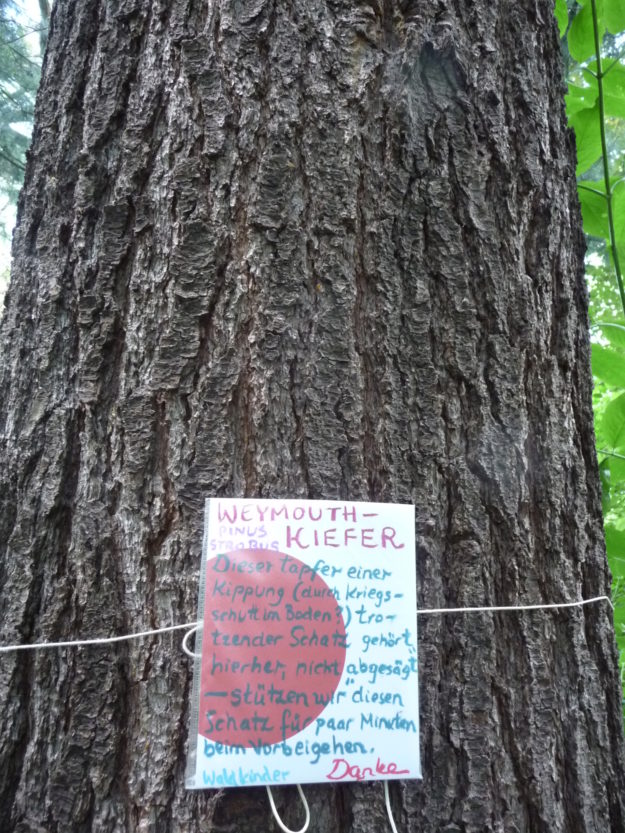 WEYMOUTH-
PINUS
STROBUS KIEFER
Dieser tapfer einer
Kippung (durch Kriegs-
schutt im Boden?) tro-
tzender Schatz gehört
hierher, nicht "abgesägt"
— stützen wir "diesen
Schatz für paar Minuten
beim Vorbeigehen.
Waldkinder Danke